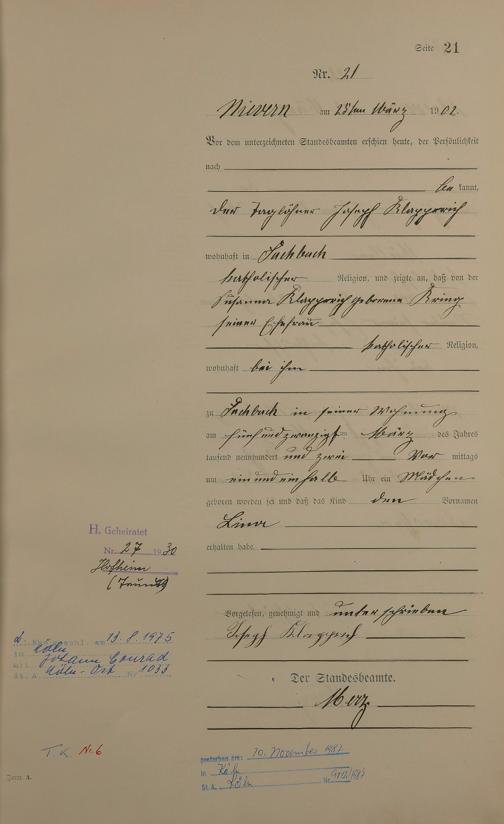 Seite 21
Nr. 21
Nievern am 25ten März 1902
Vor dem unterzeichneten Standesbeamten erschien heute, der Persönlichkeit
nach
bekannt,
der Taglöhner Joseph Klapperich
wohnhaft in Fachbach
katholischer Religion, und zeigte an, daß von der
Susanna Klapperich geborene Kring
seiner Ehefrau
katholischer Religion,
wohnhaft bei ihm
zu Fachbach in seiner Wohnung
am fünfundzwanzigsten März des Jahres
tausend neunhundert und zwei Vor mittags
um ein und ein halb Uhr ein Mädchen
geboren worden sei und daß das Kind den Vornamen
Lina
erhalten habe.
H. Geheiratet
Nr. 27 1930
Hofheim
(Taunus)
Vorgelesen, genehmigt und unterschrieben
Joseph Klapperich
am 13.8.1975
in Köln
mit Johann Conrad
St. A. Köln-Ost Nr. 1033
Der Standesbeamte.
Merz
T.K. N. 6
gestorben am: 10. November 1987
in Köln
St. A. Köln Nr.
Form A.